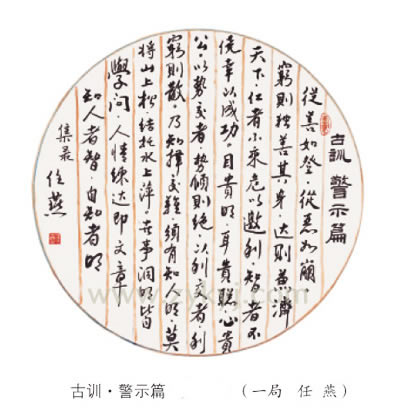 古訓 警示篇
從善如登·從惡如崩
窮則独善其身·达則兼濟
天下·仁者不乘危以邀利·智者不
侥幸以成功。目貴明·耳貴聰·心貴
公·以勢交者·勢傾則絕·以利交者·利
窮則散·乃知擇交難·須有知明·莫
将山上松·結托水上萍·世事洞明皆
學问·人情練达即文章
知人者智·自知者明
集录 任燕
古训·警示篇 （一局 任 燕）